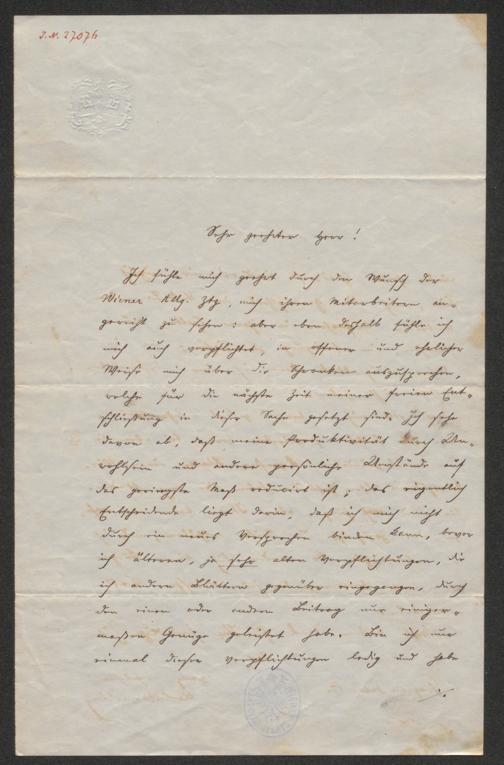 J. N. 27076
Sehr geehrter Herr!
Ich fühle mich geehrt durch den Wunsch der
Wiener Allg. Ztg., mich ihren Mitarbeitern an-
gereiht zu sehen; aber eben deshalb fühle ich
mich auch verpflichtet, in offener und ehrlicher
Weise mich über die Schranken auszusprechen,
welche für die nächste Zeit meiner freien Ent-
schließung in dieser Sache gesetzt sind. Ich sehe
davon ab, daß meine Produktivität durch Un-
wohlsein und andere persönliche Umstände auf
das geringste Maß reducirt ist; das eigentlich
Entscheidende liegt darin, daß ich mich nicht
durch ein neues Versprechen binden kann, bevor
ich älteren, ja sehr alten Verpflichtungen, die
ich andern Blättern gegenüber eingegangen, durch
den einen oder andern Beitrag nur einiger-
maßen Genüge geleistet habe. Bin ich nur
einmal dieser Verpflichtungen ledig und habe